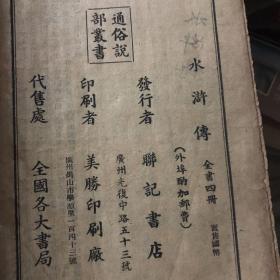 水滸傳
全書四冊
實售國幣
(外埠酌加郵費)
發行者 聯記書店
廣州光復中路五十三號
印刷者 美勝印刷廠
代售處 全國各大書局
通俗說部叢書